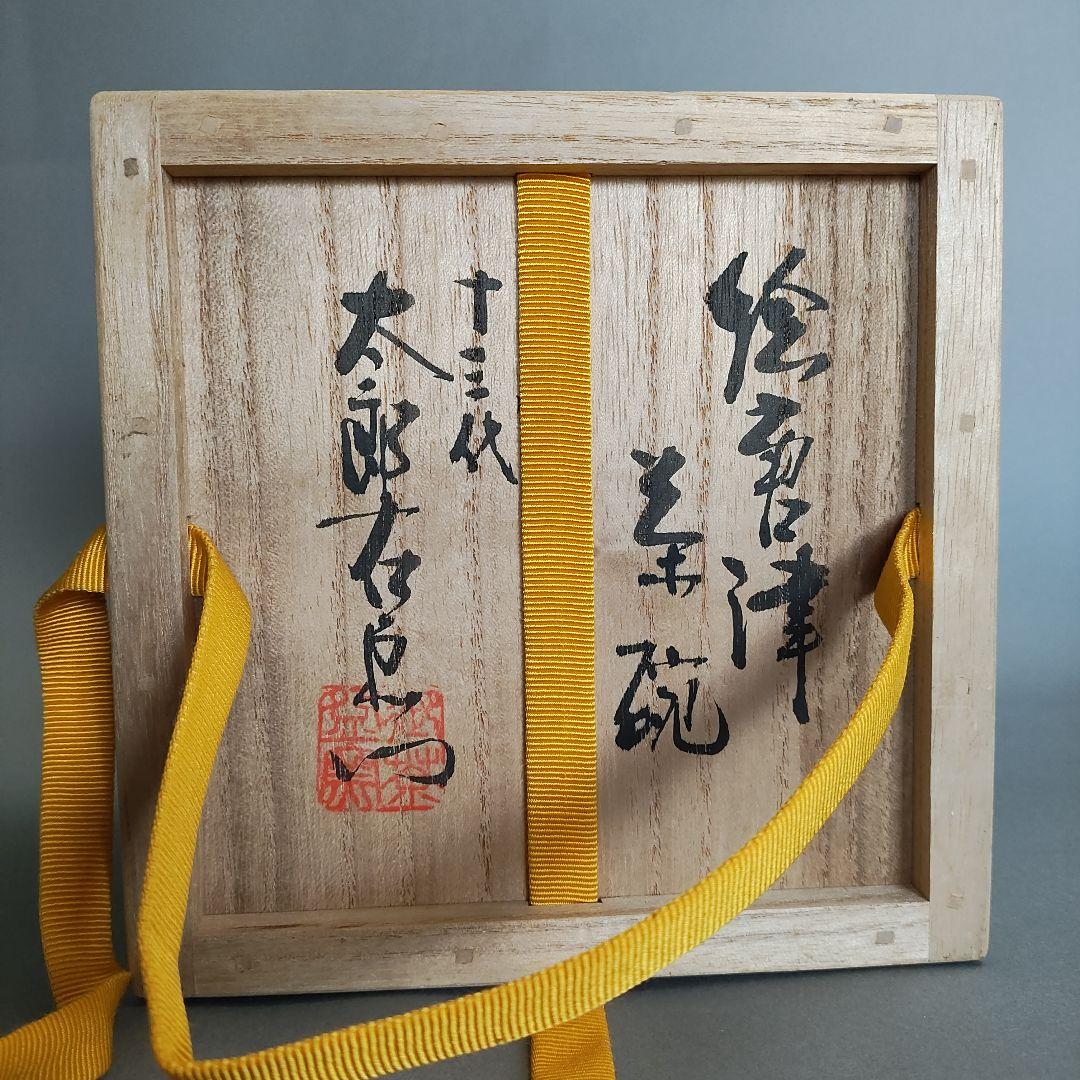 絵唐津
茶碗
十三代
太郎右衛門